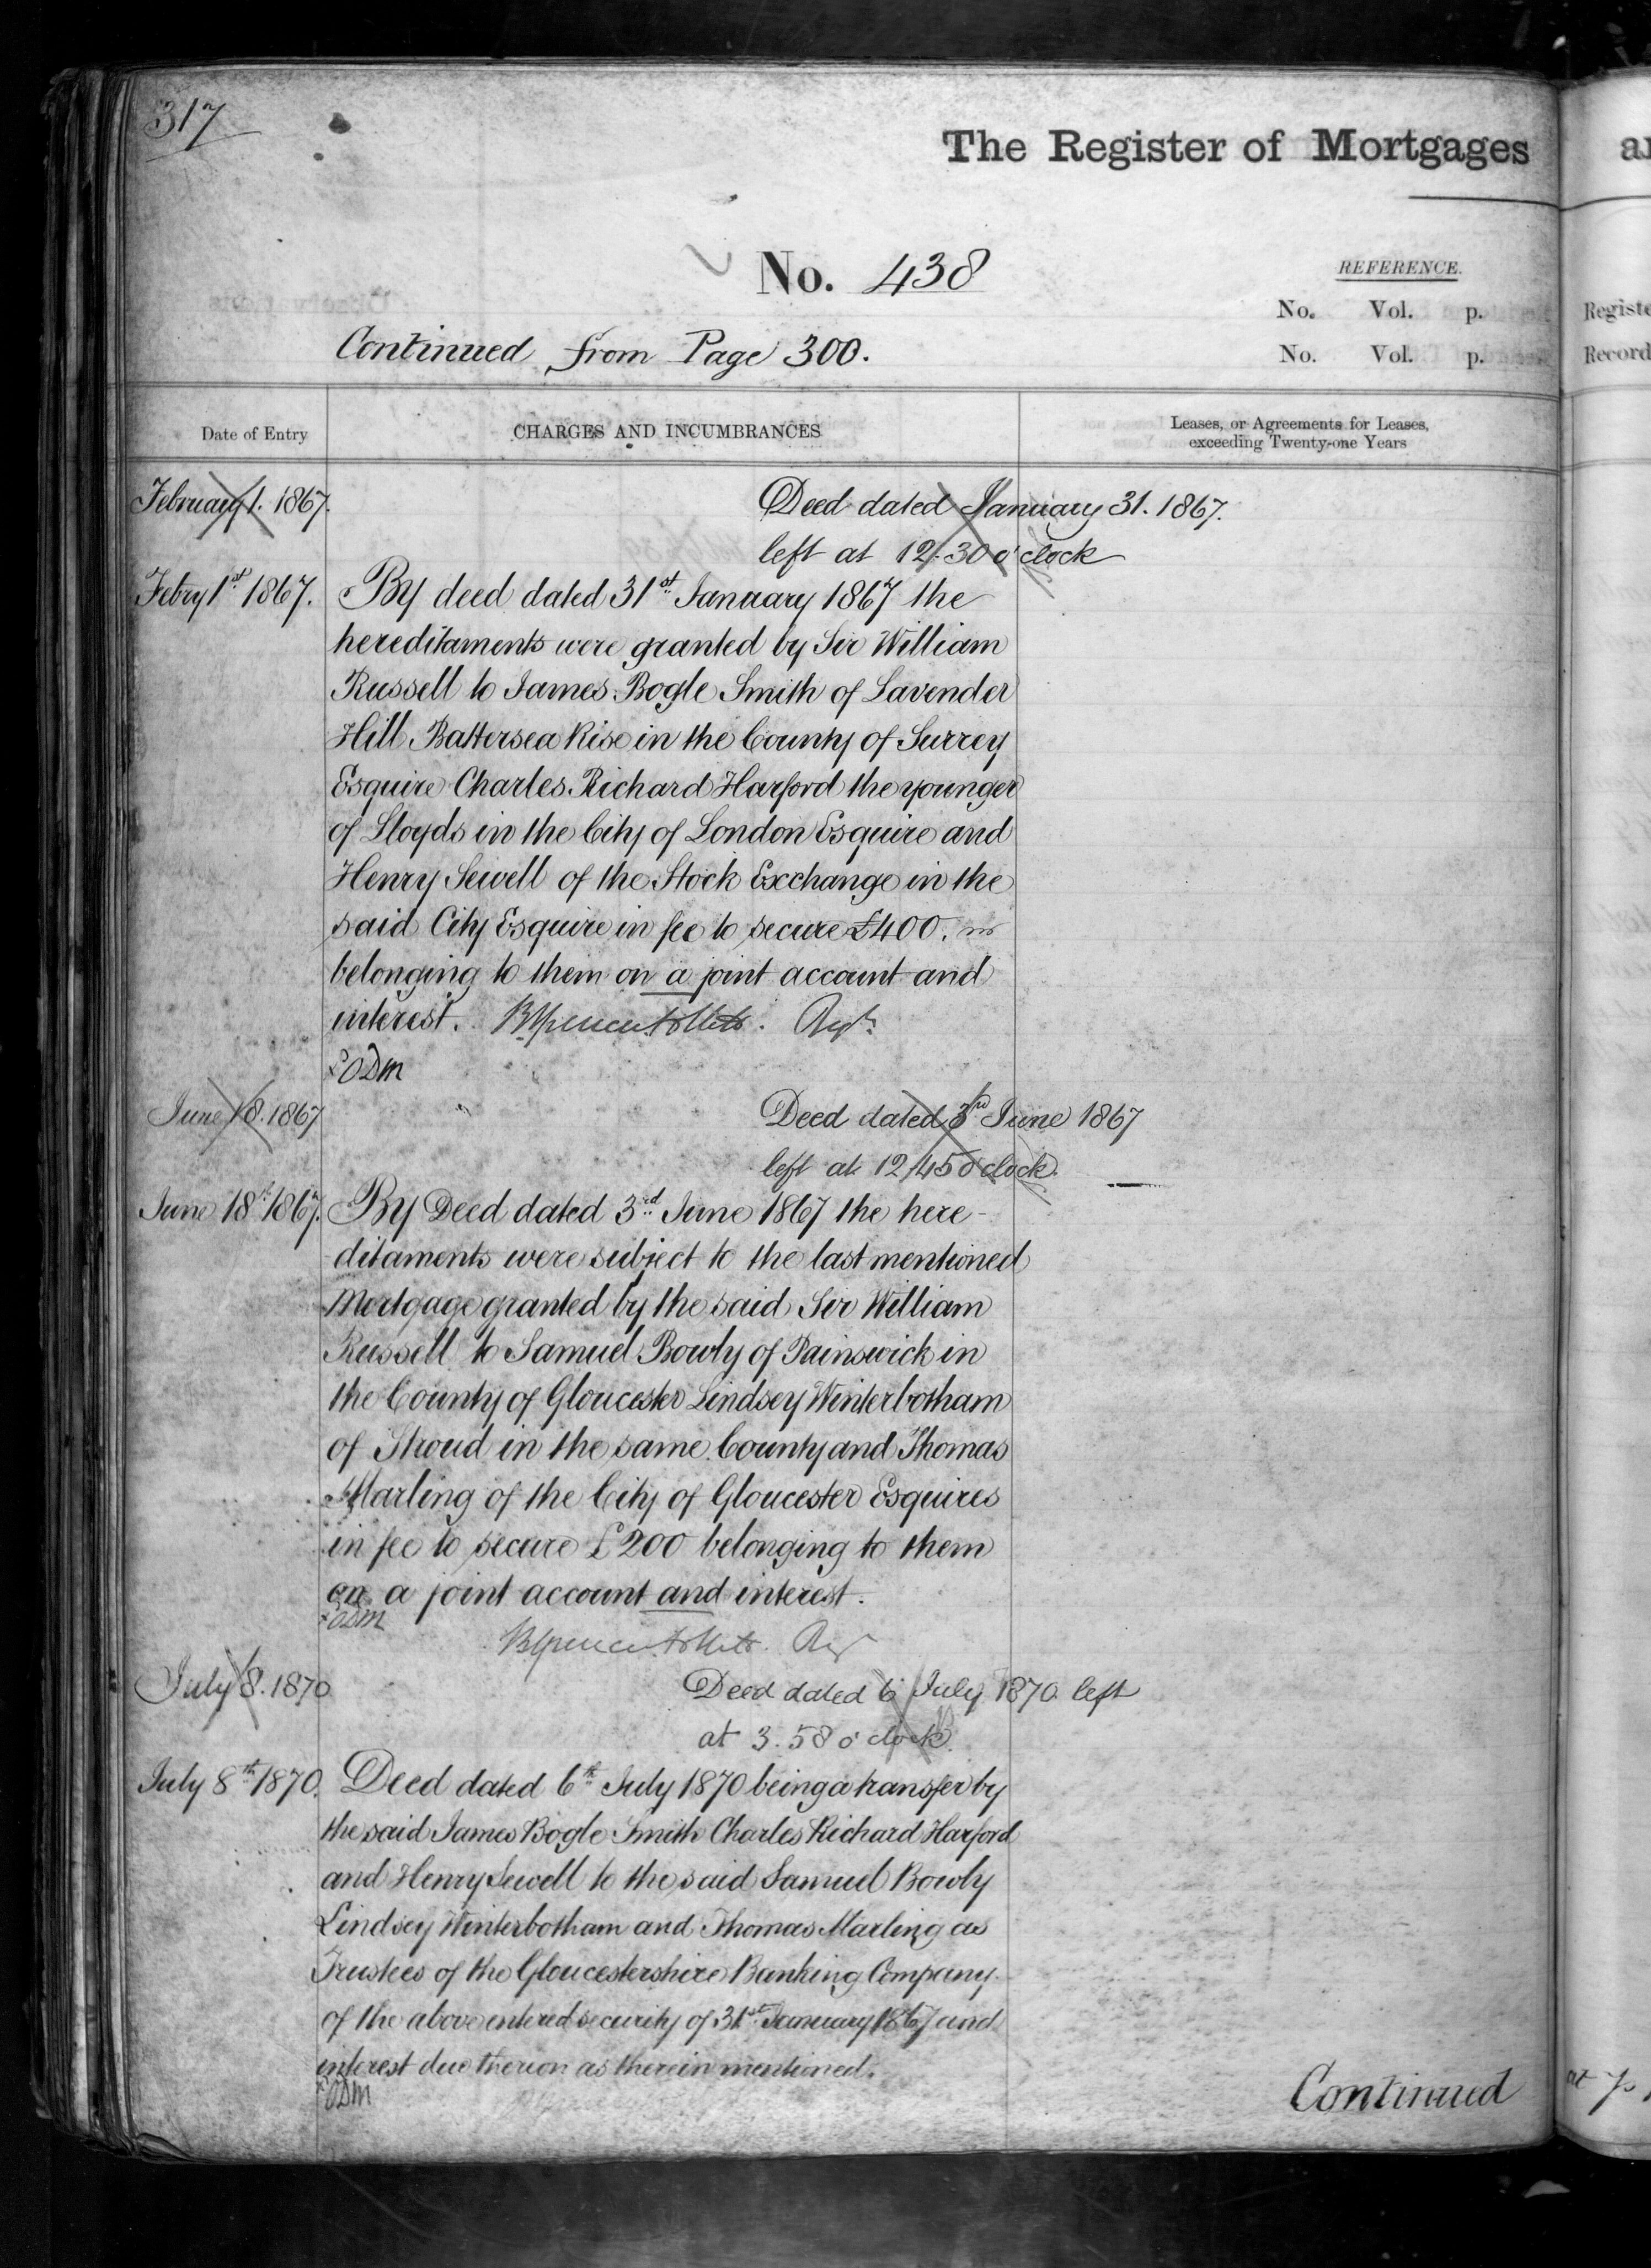 317
The Register of Mortgages
No. 438
REFERENCE.
No. Vol. p.
No. Vol. p.
Registe
Record
Continued from Page 300.
Date of Entry
CHARGES AND INCUMBRANCES
Leases, or Agreements for Leases,
exceeding Twenty-one Years
February 1. 1867.
Deed dated January 31. 1867.
left at 12.30 o'clock
Febry 1st 1867.
By deed dated 31st January 1867 the
hereditaments were granted by Sir William
Russell to James Bogle Smith of Lavender
Hill Battersea Rise in the County of Surrey
Esquire Charles Richard Harford the younger
of Lloyds in the City of London Esquire and
Henry Sewell of the Stock Exchange in the
said City Esquire in fee to secure £400.
belonging to them on a joint account and
interest. Regr
ODM
June 18. 1867
Deed dated 3rd June 1867
left at 12.45 o'clock.
June 18th 1867.
By Deed dated 3rd June 1867 the here-
ditaments were subject to the last mentioned
Mortgage granted by the said Sir William
Russell to Samuel Bowly of Painswick in
the County of Gloucester Lindsey Winterbotham
of Stroud in the same County and Thomas
Marling of the City of Gloucester Esquires
in fee to secure £200 belonging to them
on a joint account and interest.
ODM
Regr
July 8. 1870
Deed dated 6 July 1870 left
at 3.58 o'clock.
July 8th 1870.
Deed dated 6th July 1870 being a transfer by
the said James Bogle Smith Charles Richard Harford
and Henry Sewell to the said Samuel Bowly
Lindsey Winterbotham and Thomas Marling as
Trustees of the Gloucestershire Banking Company
of the above entered security of 31st January 1867 and
interest due thereon as therein mentioned.
ODM
Continued
at p